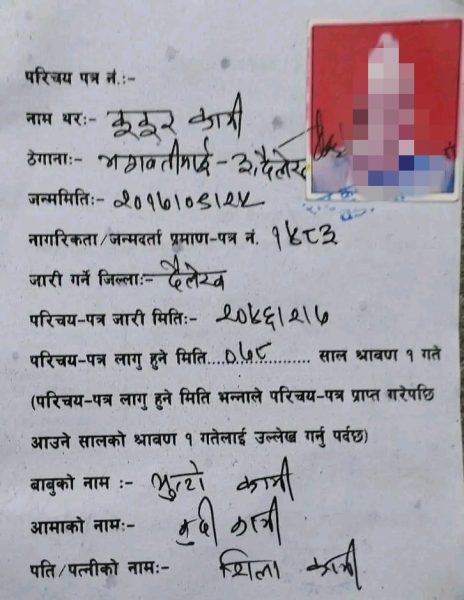 परिचय पत्र नं.:-
नाम थर:- कुकुर कामी
ठेगाना:- भगवतीमाई - ३, दैलेख
जन्ममिति:-
नागरिकता/जन्मदर्ता प्रमाण-पत्र नं. १४८३
जारी गर्ने जिल्ला:- दैलेख
परिचय-पत्र जारी मिति:- २०४६।२।७
परिचय-पत्र लागु हुने मिति...०७८........... साल श्रावण १ गते
(परिचय-पत्र लागु हुने मिति भन्नाले परिचय-पत्र प्राप्त गरेपछि
आउने सालको श्रावण १ गतेलाई उल्लेख गर्नु पर्दछ)
बाबुको नाम :- कामी
आमाको नाम:- कामी
पति/पत्नीको नाम:- शिला कामी